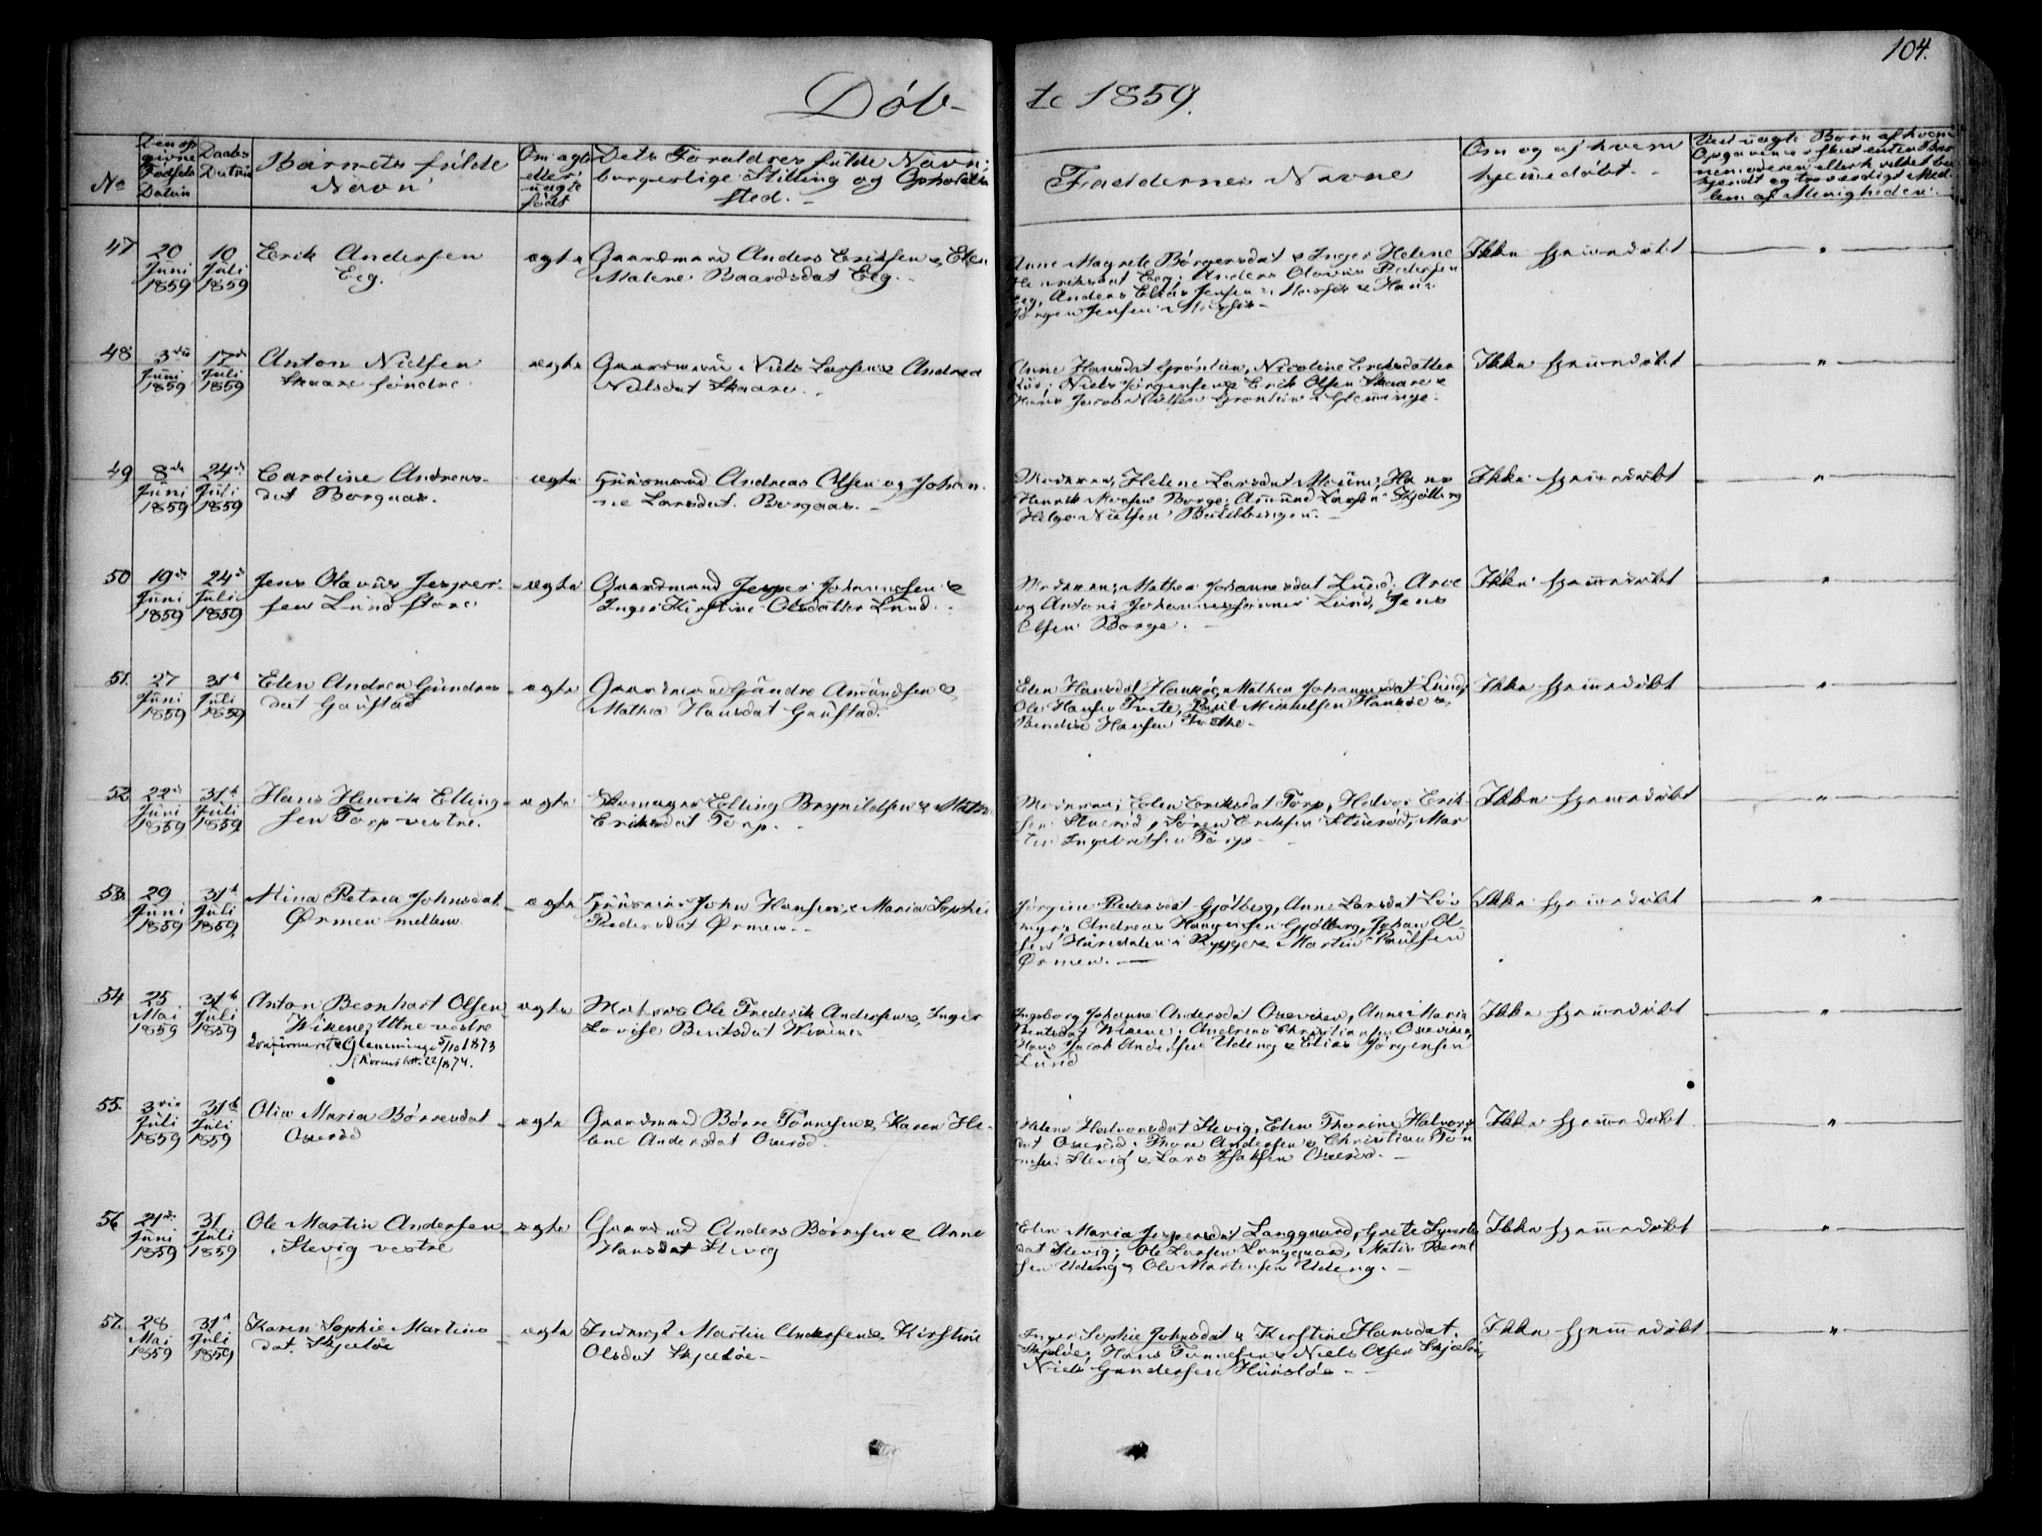 104.
Døb-
te 1859.
No
Den op
givne
Fødsels
Datum
Daabs
Datum
Barnets fulde
Navn
Om ægte
eller
uægte
født
Dets Forældres fulde Navn,
borgerlige Stilling og Opholds
sted. -
Faddernes Navne
Om og af hvem
hjemmedøbt. -
Ved uægte Børn af hvem
Opgavene
lem af Menigheden.
47
20
Juni
1859
10
Juli
1859
Erik Andersen
Eeg.
ægte
Gaardmand Anders Eriksen & Elen
Malene Baardsdat Eeg. -
Anne Magrete Børgersdat & Inger Helene
Henriksdat Eeg; Anders Olavus Pedersen
Eeg, Anders Elias Jensen & Hans
Jørgen Jensen
Ikke hjemmedøbt
"
48
3die
Juni
1859
17de
Juli
1859
Anton Nielsen
Skaare søndre
ægte
Gaardmand Niels Larsen & Andrea
Nilsdat Skaare.
Anne Hansdat Grønlien, Nicoline Eriksdatter
Niels Jørgensen & Erik Olsen Skaare &
Hans Jacob Nielsen Grønlien i Glemminge.
Ikke hjemmedøbt
"
49
8de
Juni
1859
24de
Juli
1859
Caroline Andreas-
dat Borgaas.
ægte
Huusmand Andreas Olsen og Johan-
ne Larsdat. Borgaas. -
Moderen, Helene Larsdat Moum; Hans
Henrik Monsen Borge; Amund Larsen
Helge Nielsen
Ikke hjemmedøbt
"
50
19de
Juni
1859
24de
Juli
1859
Jens Olavus Jesper-
sen Lund store
ægte
Gaardmand Jesper Johannesen &
Inger Kirstine Olsdatter Lund.
Moderen; Mathea Johannesdat Lund; Arve
og Antoni Johannessønner Lund, Jens
Olsen Borge. -
Ikke hjemmedøbt
"
51.
27
Juni
1859
31te
Juli
1859
Elen Andrea Gunders
dat Gaustad
ægte
Gaardmand Gunder Amundsen &
Mathea Hansdat Gaustad.
Elen Hansdat Hankøe, Mathea Johannesdat Lund,
Ole Hansen Torte, Poul Mikkelsen Hankøe &
Hansen
Ikke hjemmedøbt
"
52
22de
Juni
1859
31te
Juli
1859
Hans Henrik Elling-
sen Torp vestre.
ægte
Skomager Elling Brynildsen &
Eriksdat Torp.
Moderen; Elen Eriksdat Torp, Halvor Erik-
sen Stuerød, Søren Eriksen Stuerød, Mar
tin Ingebretsen Torp -
Ikke hjemmedøbt
"
53.
29
Juni
1859
31te
Juli
1859.
Mina Petrea Johnsdat
Ørmen mellem
ægte
Huusm. John Hansen & Maria Sophie
Pedersdat Ørmen. -
Jørgine Pedersdat Gjølberg, Anne Larsdat
Andreas Gjølberg, Johan Ol-
sen i Rygge & Martin Paulsen
Ørmen. -
Ikke hjemmedøbt
"
54
25
Mai
1859
31te
Juli
1859
Anton Bernhart Olsen
Wikene, Utne vestre
Glemminge 5/10 1873
ægte
Matros Ole Frederik Andersen & Inger
Lovise Berntsdat Wikene
Ingeborg Johanne Andersdat Oueviken, Anne Maria
Berntsdat Wikene, Andreas Christiansen Oueviken,
Hans Jacob Andersen Udeng & Elias Jørgensen
Lund
Ikke hjemmedøbt
"
55.
3die
Juli
1859
31te
Juli
1859
Olia Maria Børresdat
Ouerød
ægte
Gaardmand Børre Tønnesen & Karen He-
lene Andersdat Ouerød
Helene Halvorsdat Slevig, Elen Thorine Halvors
dat Ouerød; Thore Andersen & Christian Tøn
nesen Slevig & Lars Isaksen Ouerød. -
Ikke hjemmedøbt
"
56
21de
Juni
1859
31
Juli
1859
Ole Martin Andersen
Slevig vestre
ægte
Gaardmand Anders Børresen & Anne
Hansdat Slevig
Elen Maria Jespersdat Langgaard, Grete Syverts
dat Slevig; Ole Larsen Langgaard, Matis Bernt
sen Udeng & Ole Martinsen Udeng. -
Ikke hjemmedøbt
"
57.
28
Mai
1859
31te
Juli
1859
Karen Sophie Martins
dat. Skjeløe
ægte
Inderst Martin Andersen & Kirstine
Olsdat Skjeløe -
Inger Sophie Johnsdat & Kirstine Hansdat.
Skjeløe; Hans Tønnesen & Niels Olsen Skjeløe,
Niels Gundersen Huusløs - -
Ikke hjemmedøbt
"